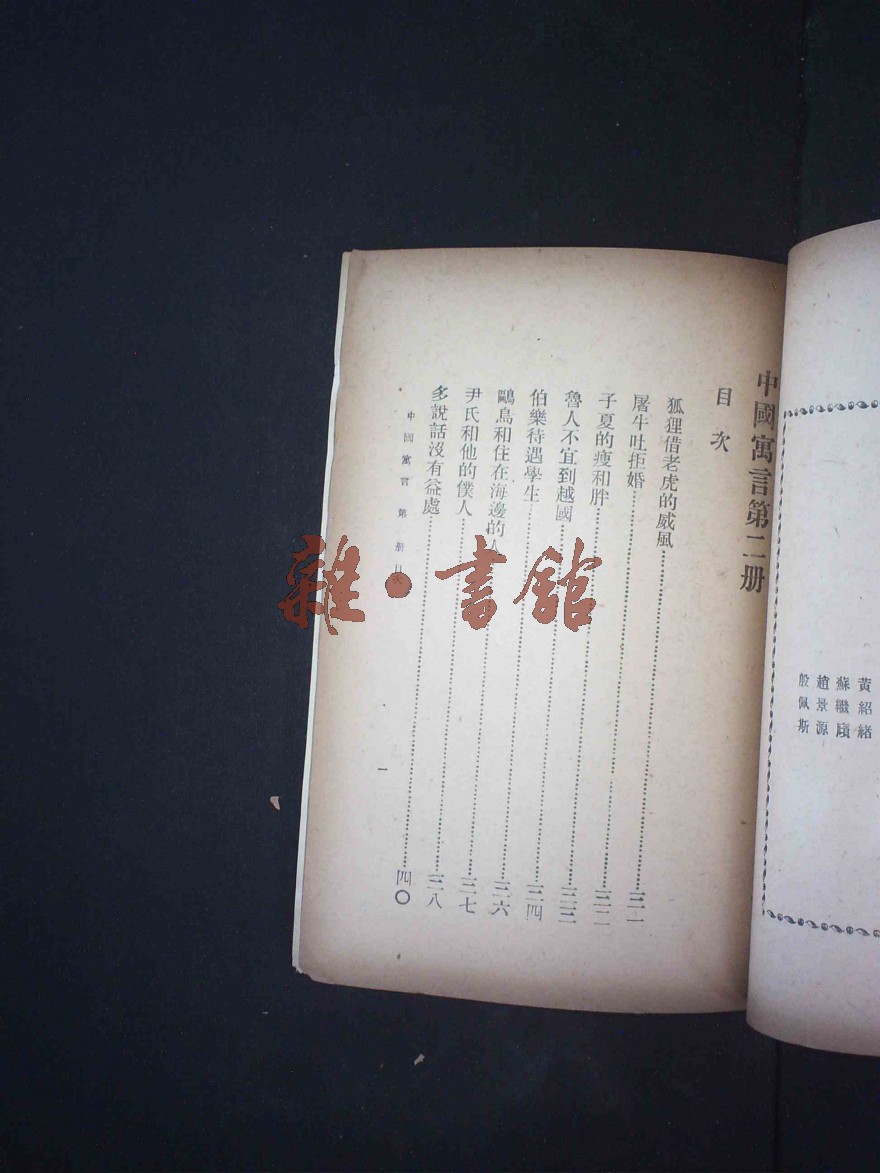 黃紹緒
蘇繼廎
趙景源
殷佩斯
中國寓言第二册
目次
狐狸借老虎的威風……三一
屠牛吐拒婚……三二
子夏的瘦和胖……三三
魯人不宜到越國……三四
伯樂待遇學生……三六
鷗鳥和住在海邊的人……三七
尹氏和他的僕人……三八
多說話沒有益處……四〇
中國寓言 第 册目次 一
雜·書館